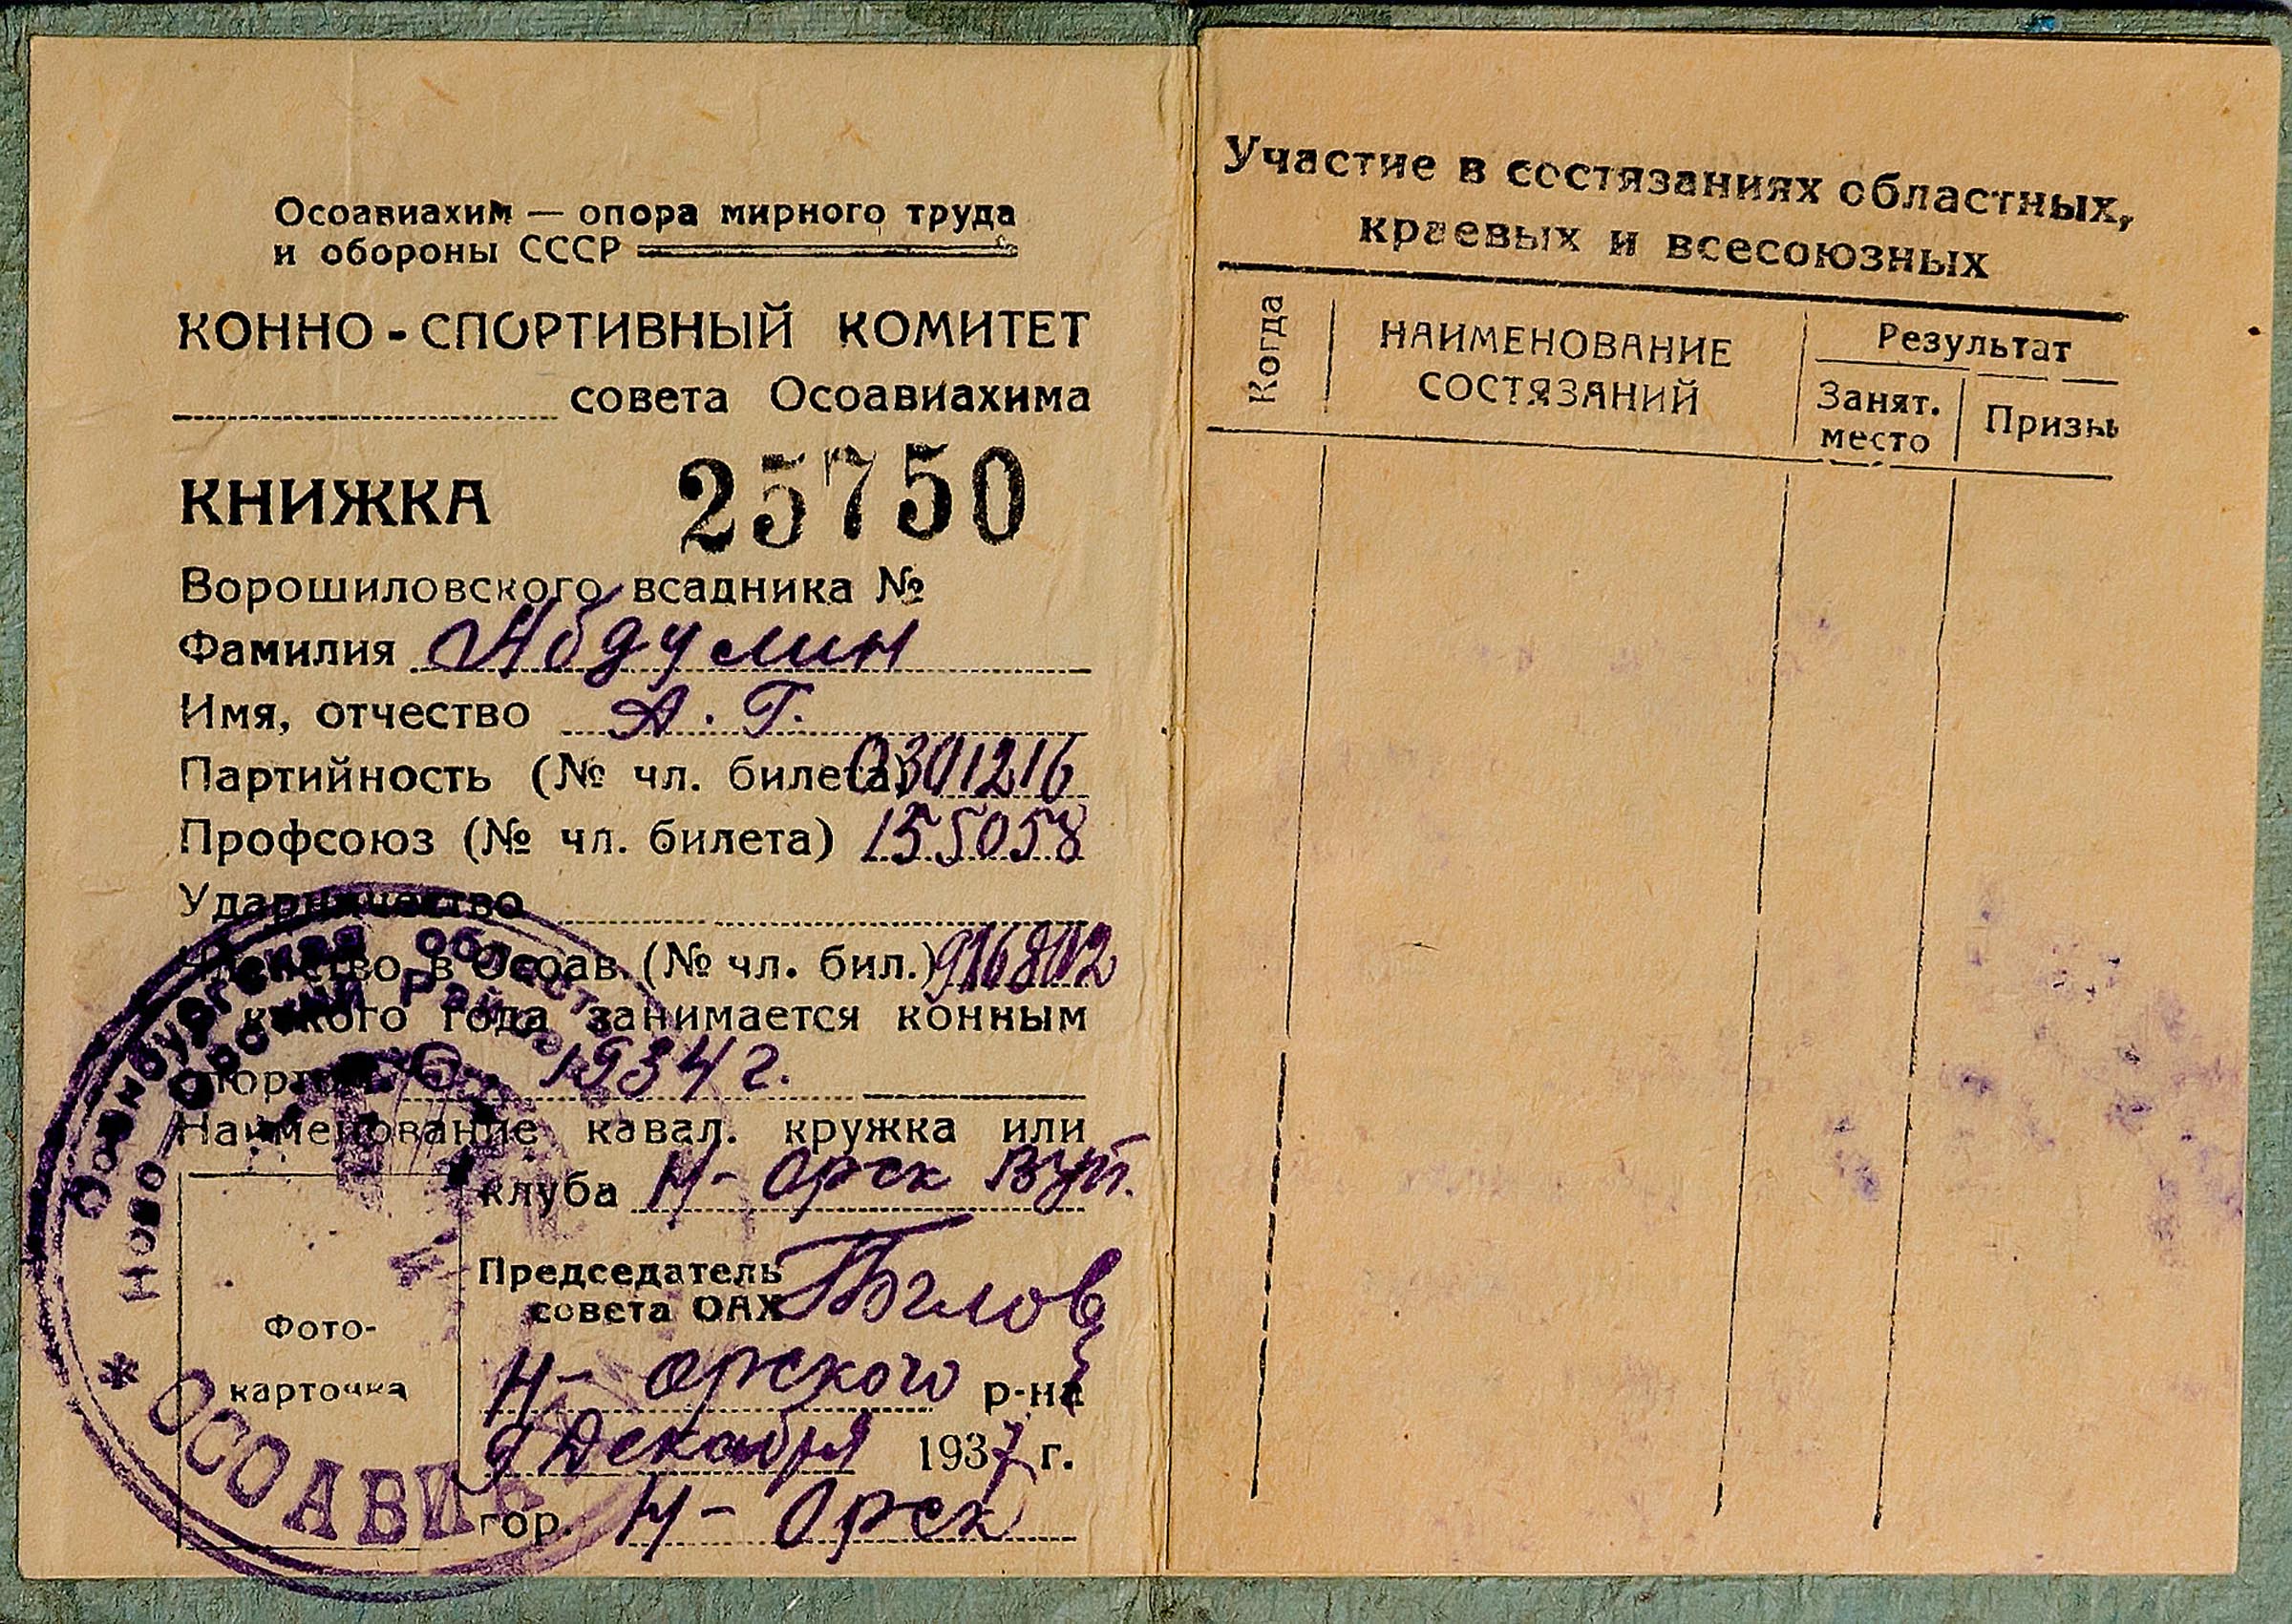 Осоавиахим — опора мирного труда
и обороны СССР
КОННО-СПОРТИВНЫЙ КОМИТЕТ
совета Осоавиахима
КНИЖКА 25750
Ворошиловского всадника №
Фамилия Абдулин
Имя, отчество А. Г.
Партийность (№ чл. билета) 0301216
Профсоюз (№ чл. билета) 155058
Ударничество
Членство в Осоав. (№ чл. бил.)
С какого года занимается конным
спортом С 1934 г.
Наименование кавал. кружка или
клуба Н-Орск
Председатель
совета ОАХ
Н-Орского р-на
9 Декабря 1937 г.
гор. Н-Орск
Фото-
карточка
Оренбургская область
Ново Орский Рай
* ОСОАВИ
Участие в состязаниях областных,
краевых и всесоюзных
Когда
НАИМЕНОВАНИЕ
СОСТЯЗАНИЙ
Результат
Занят.
место
Призы